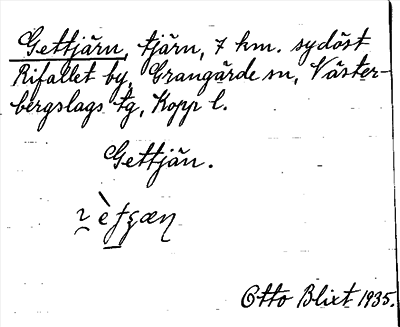 Gettjärn, tjärn, 7 km. sydöst
Rifallet by, Grangärde sn, Väster-
bergslags tg, Kopp l.
Gettjän.
Otto Blixt 1935.